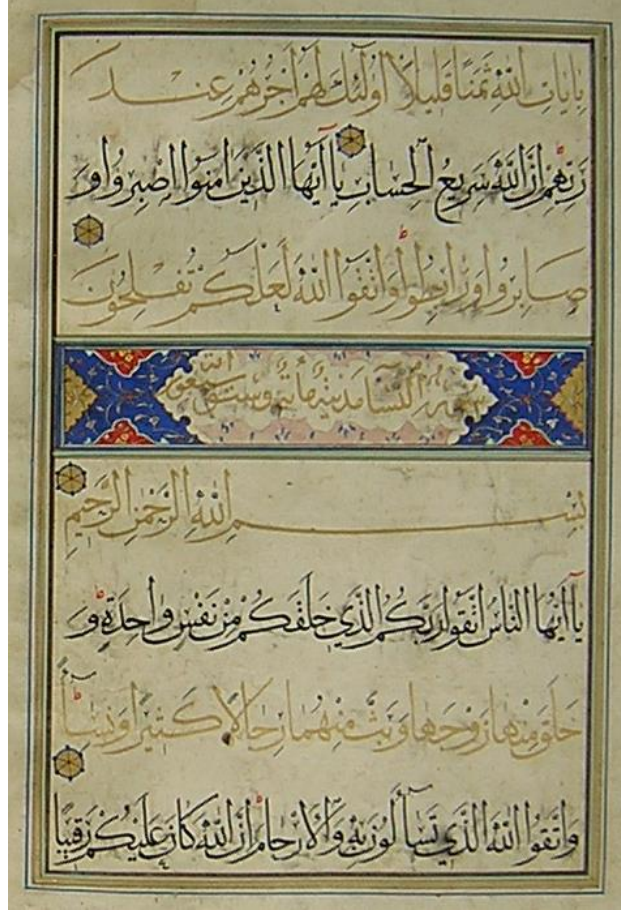 بِاٰيَاتِ اللّٰهِ ثَمَنًا قَلِيلًا اُولٰٓئِكَ لَهُمْ اَجْرُهُمْ عِنْدَ
رَبِّهِمْ اِنَّ اللّٰهَ سَرِيعُ الْحِسَابِ يَآ اَيُّهَا الَّذِينَ اٰمَنُوا اصْبِرُوا وَ
صَابِرُوا وَرَابِطُوا وَاتَّقُوا اللّٰهَ لَعَلَّكُمْ تُفْلِحُونَ
سورة النسا مدنية مائة وست وسبعون اية
بِسْمِ اللّٰهِ الرَّحْمٰنِ الرَّحِيمِ
يَآ اَيُّهَا النَّاسُ اتَّقُوا رَبَّكُمُ الَّذِي خَلَقَكُمْ مِنْ نَفْسٍ وَاحِدَةٍ وَ
خَلَقَ مِنْهَا زَوْجَهَا وَبَثَّ مِنْهُمَا رِجَالًا كَثِيرًا وَنِسَآءً
وَاتَّقُوا اللّٰهَ الَّذِي تَسَآءَلُونَ بِهِ وَالْاَرْحَامَ اِنَّ اللّٰهَ كَانَ عَلَيْكُمْ رَقِيبًا